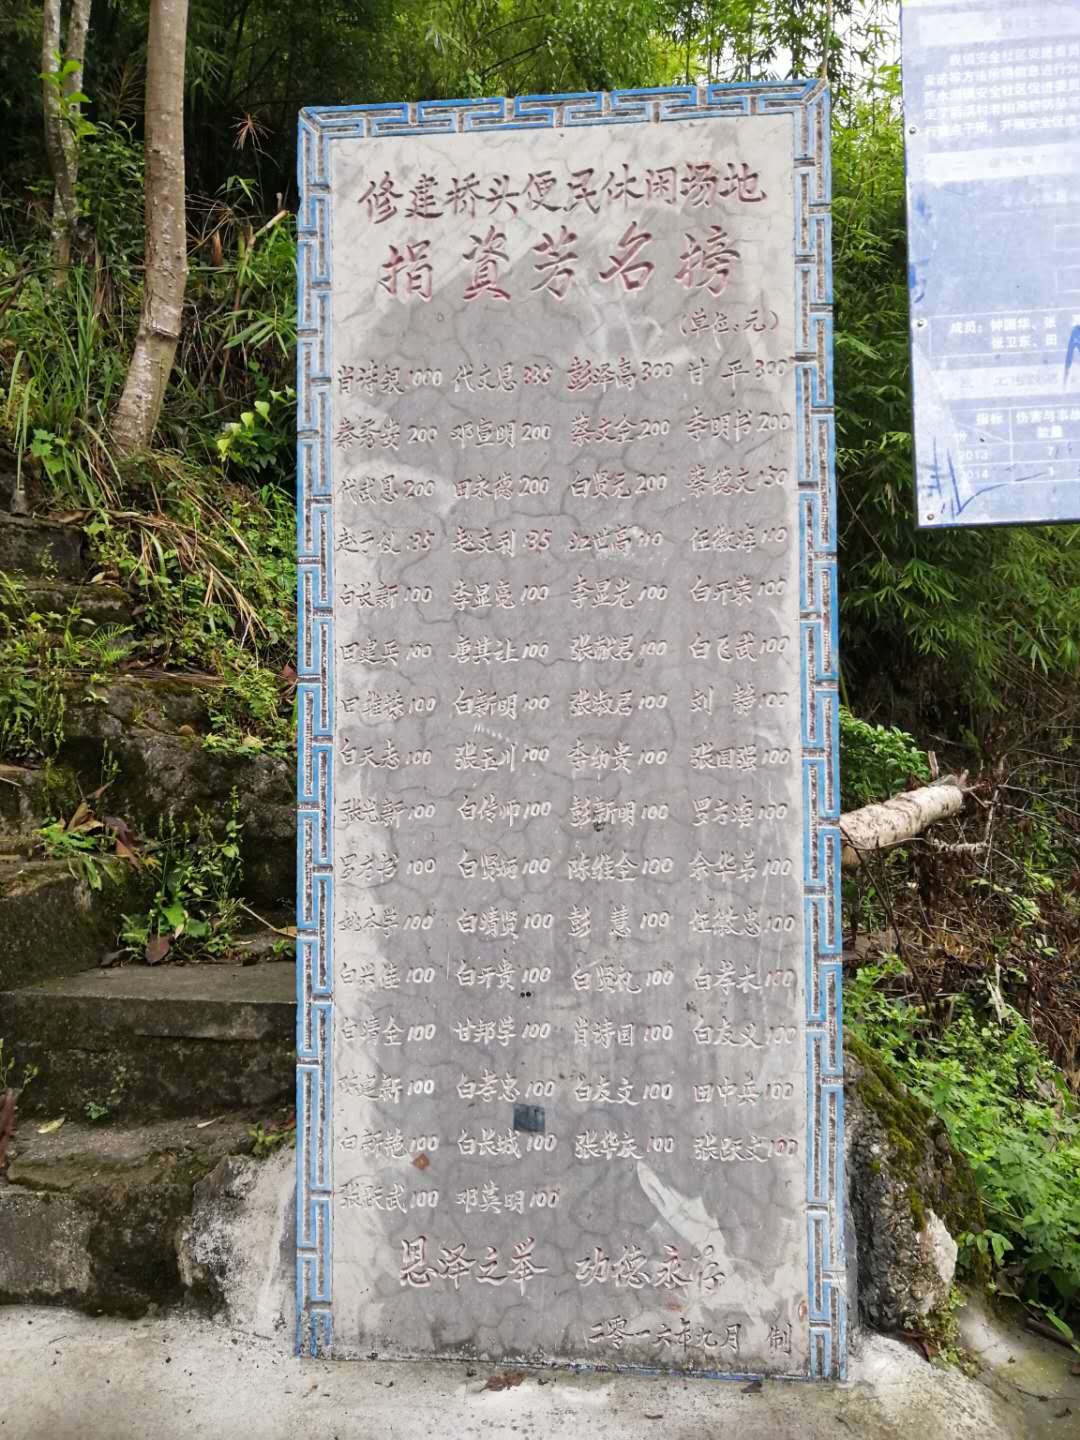 修建桥头便民休闲场地
捐資芳名榜
(单位:元)
肖诗银1000 代文思335 彭泽高300 甘平300
秦秀贵200 邓宣明200 蔡文全200 李明书200
代武思200 田永德200 白贤元200 蔡德文150
135 赵文利135 江世高110 任徽海110
白长新100 李显亮100 李显光100 白开荣100
田建兵100 唐其让100 张淑君100 白飞武100
田维 100 白新明100 张淑君100 刘静100
白天志100 张玉川100 李幼贵100 张国强100
张光新100 白传师100 彭新明100 罗方海100
罗方书100 白贤炳100 陈维全100 余华弟100
姚本学100 白靖贤100 彭慧100 任徽忠100
白兴佳100 白开贵100 白贤礼100 白孝木100
白靖全100 甘邦学100 肖诗国100 白友义100
建新100 白孝忠100 白友文100 田中兵100
白新艳100 白长城100 张华灰100 张跃文100
张跃武100 邓英明100
恩泽之举 功德永存
二零一六年九月 制
成员:钟国华、张
张卫东、田
指标 伤害与事故
2013 7
2014 1